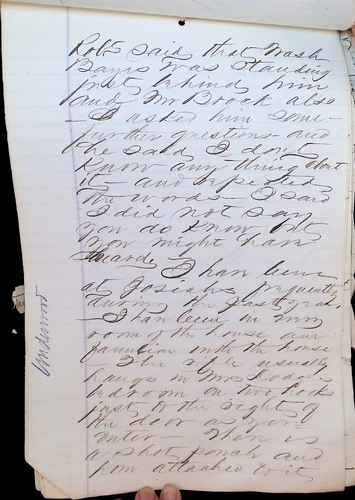 Robt said that Wash
Bays was standing
just behind him
and Mr Brook also
- I asked him some
further questions and
he said I dont
know any thing about
it - and repeated
the words - I said
I did not say
you do know but
you might have
heard
I have been
at Josiahs frequently
during the past year
- I have been in every
room of the house, and
familiar with the house
- The rifle usually
hangs in Mrs
bedroom on two hooks
just to the right of
the door as you
enter - There is
a shot pouch and
horn attached to it
Underwood